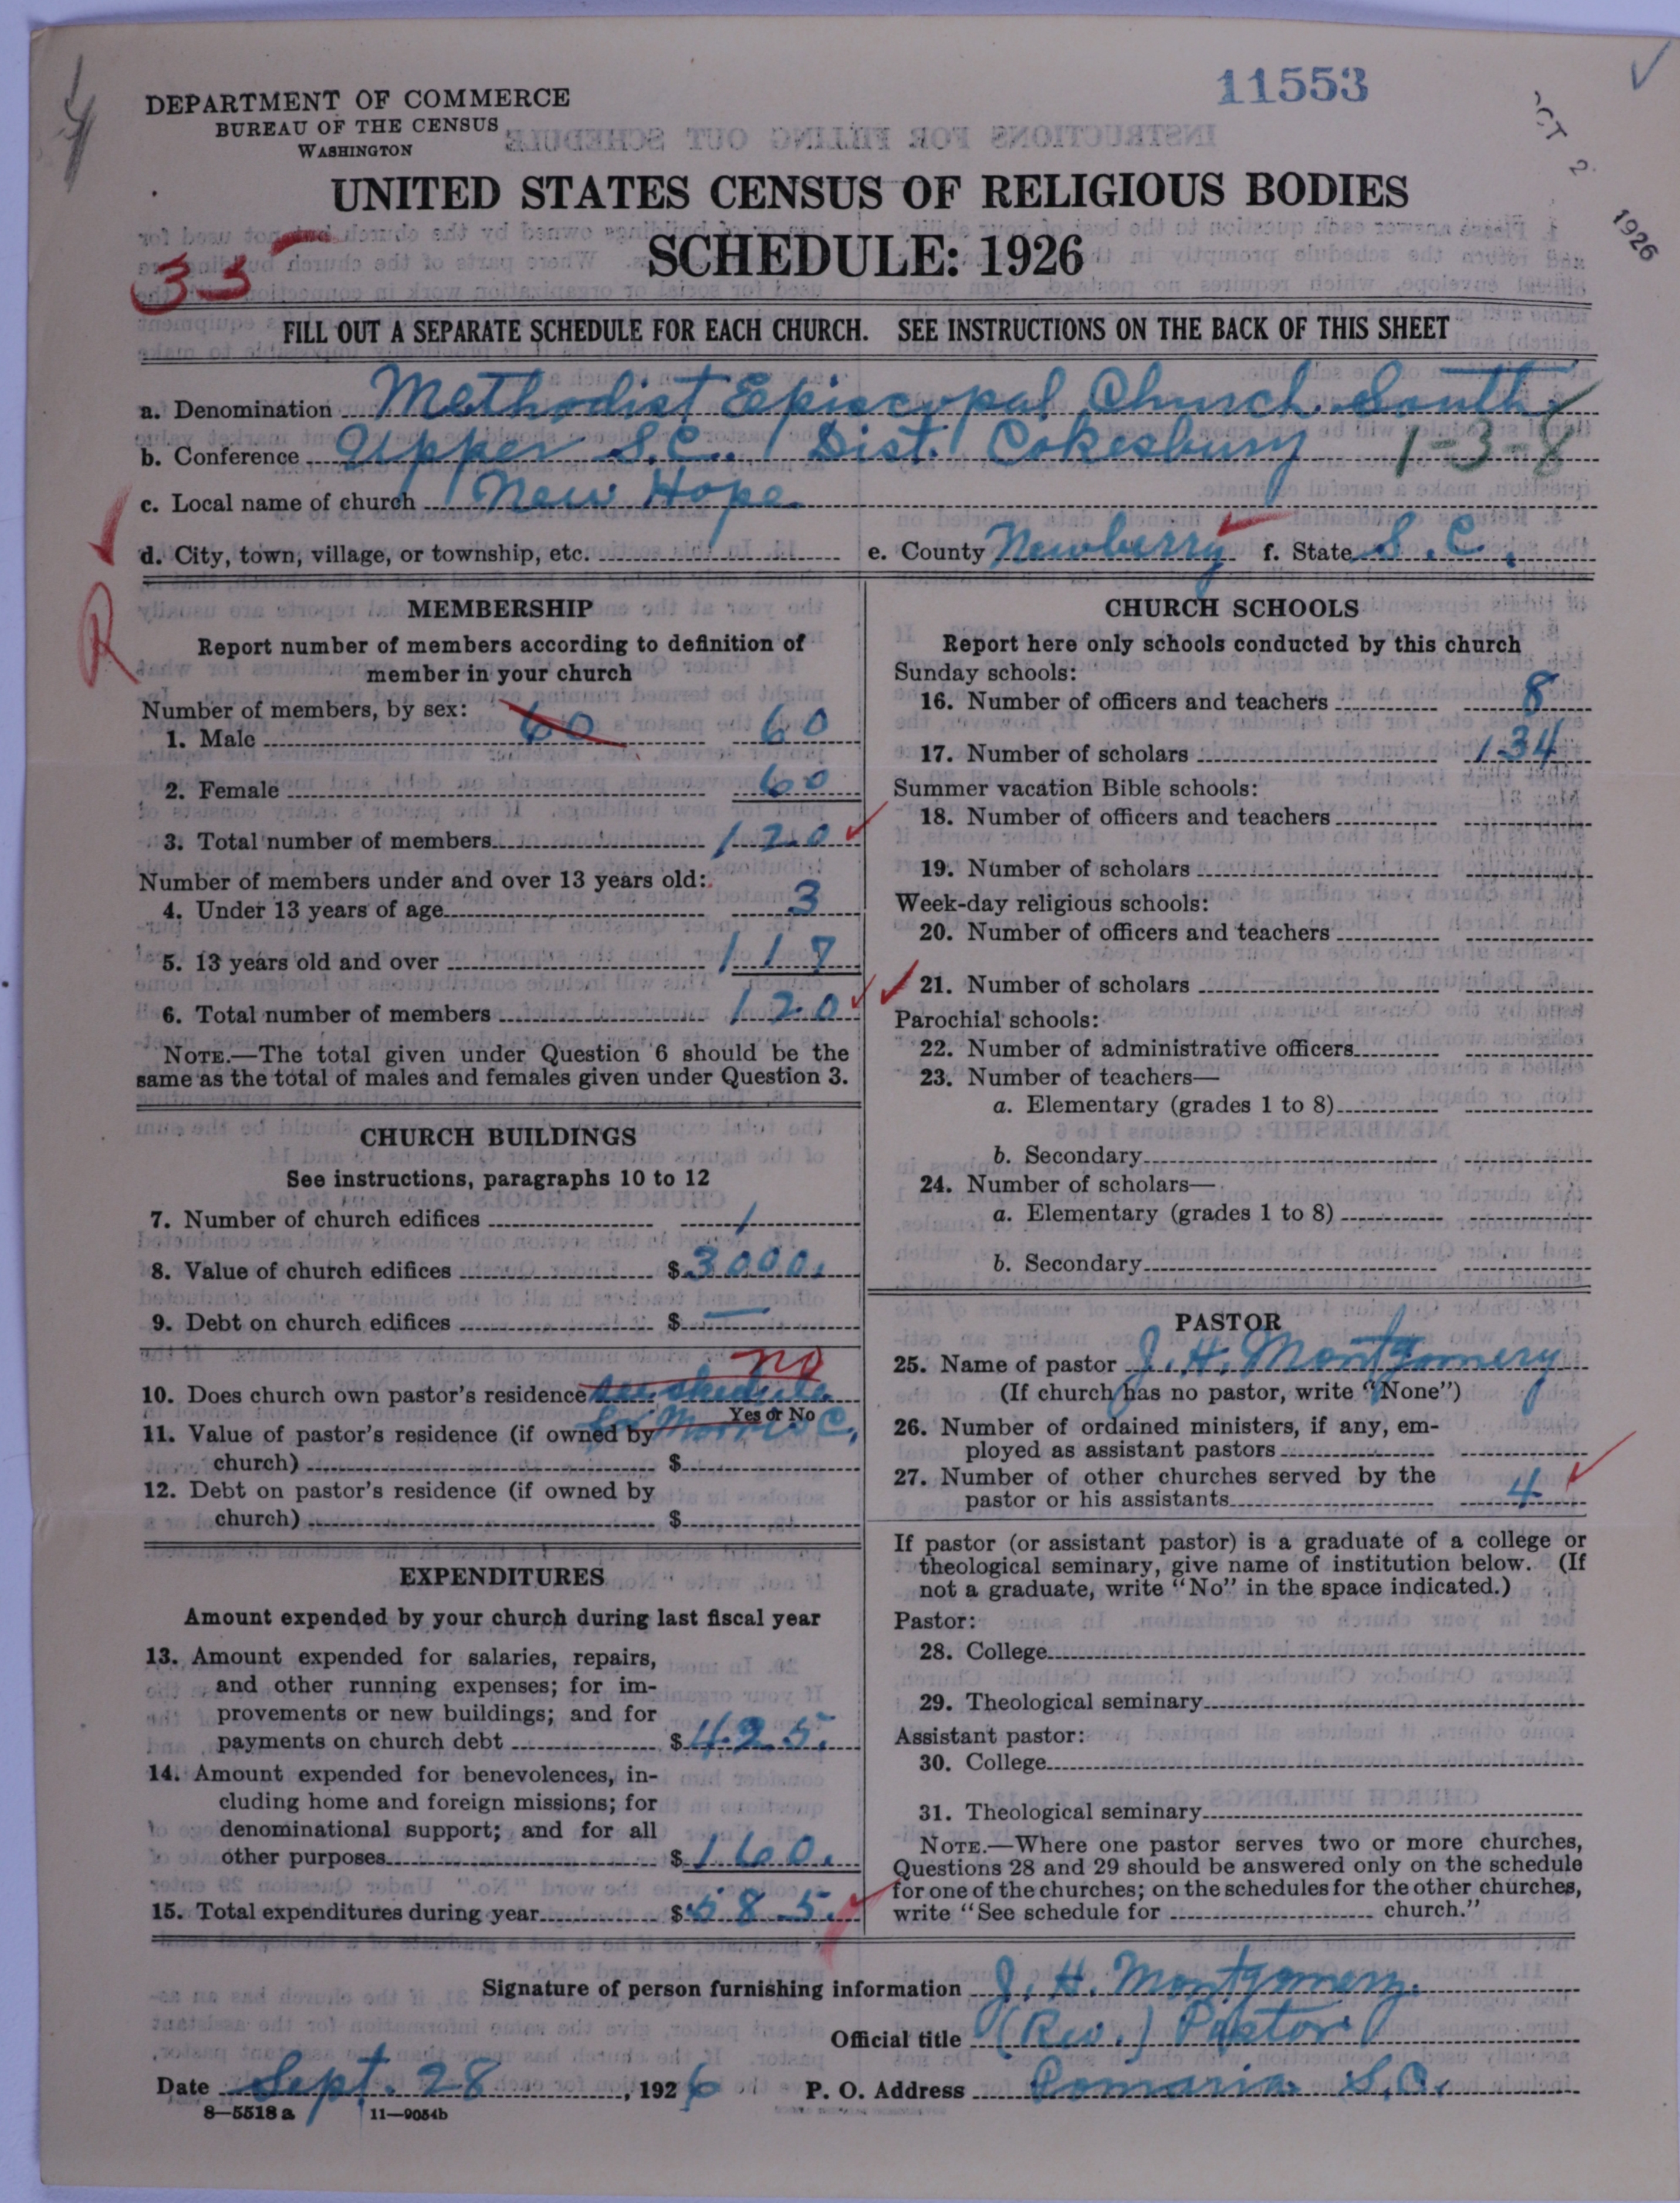 11553
DEPARTMENT OF COMMERCE
BUREAU OF THE CENSUS
WASHINGTON
UNITED STATES CENSUS OF RELIGIOUS BODIES
SCHEDULE: 1926
1926
35
FILL OUT A SEPARATE SCHEDULE FOR EACH CHURCH. SEE INSTRUCTIONS ON THE BACK OF THIS SHEET
a. Denomination Methodist Episcopal Church South
b. Conference Upper S.C. / Dist. Cokesbury 1-3-8
c. Local name of church New Hope
d. City, town, village, or township, etc. e. County Newberry f. State S.C.
R
MEMBERSHIP
Report number of members according to definition of
member in your church
Number of members, by sex:
1. Male 60 60
2. Female 60
3. Total number of members 120
Number of members under and over 13 years old:
4. Under 13 years of age 3
5. 13 years old and over 117
6. Total number of members 120
NOTE.—The total given under Question 6 should be the
same as the total of males and females given under Question 3.
CHURCH BUILDINGS
See instructions, paragraphs 10 to 12
7. Number of church edifices 1
8. Value of church edifices $3000.
9. Debt on church edifices $ —
no
10. Does church own pastor's residence see schedule
Yes or No
11. Value of pastor's residence (if owned by
church) $
12. Debt on pastor's residence (if owned by
church) $
EXPENDITURES
Amount expended by your church during last fiscal year
13. Amount expended for salaries, repairs,
and other running expenses; for im-
provements or new buildings; and for
payments on church debt $425.
14. Amount expended for benevolences, in-
cluding home and foreign missions; for
denominational support; and for all
other purposes $160.
15. Total expenditures during year $585.
CHURCH SCHOOLS
Report here only schools conducted by this church
Sunday schools:
16. Number of officers and teachers 8
17. Number of scholars 134
Summer vacation Bible schools:
18. Number of officers and teachers
19. Number of scholars
Week-day religious schools:
20. Number of officers and teachers
21. Number of scholars
Parochial schools:
22. Number of administrative officers
23. Number of teachers—
a. Elementary (grades 1 to 8)
b. Secondary
24. Number of scholars—
a. Elementary (grades 1 to 8)
b. Secondary
PASTOR
25. Name of pastor J. H. Montgomery
(If church has no pastor, write "None")
26. Number of ordained ministers, if any, em-
ployed as assistant pastors
27. Number of other churches served by the
pastor or his assistants 4
If pastor (or assistant pastor) is a graduate of a college or
theological seminary, give name of institution below. (If
not a graduate, write "No" in the space indicated.)
Pastor:
28. College
29. Theological seminary
Assistant pastor:
30. College
31. Theological seminary
NOTE.—Where one pastor serves two or more churches,
Questions 28 and 29 should be answered only on the schedule
for one of the churches; on the schedules for the other churches,
write "See schedule for church."
Signature of person furnishing information J. H. Montgomery.
Official title (Rev.) Pastor
Date Sept. 28, 1926 P. O. Address Pomaria S.C.
8—5518 a 11—9054b